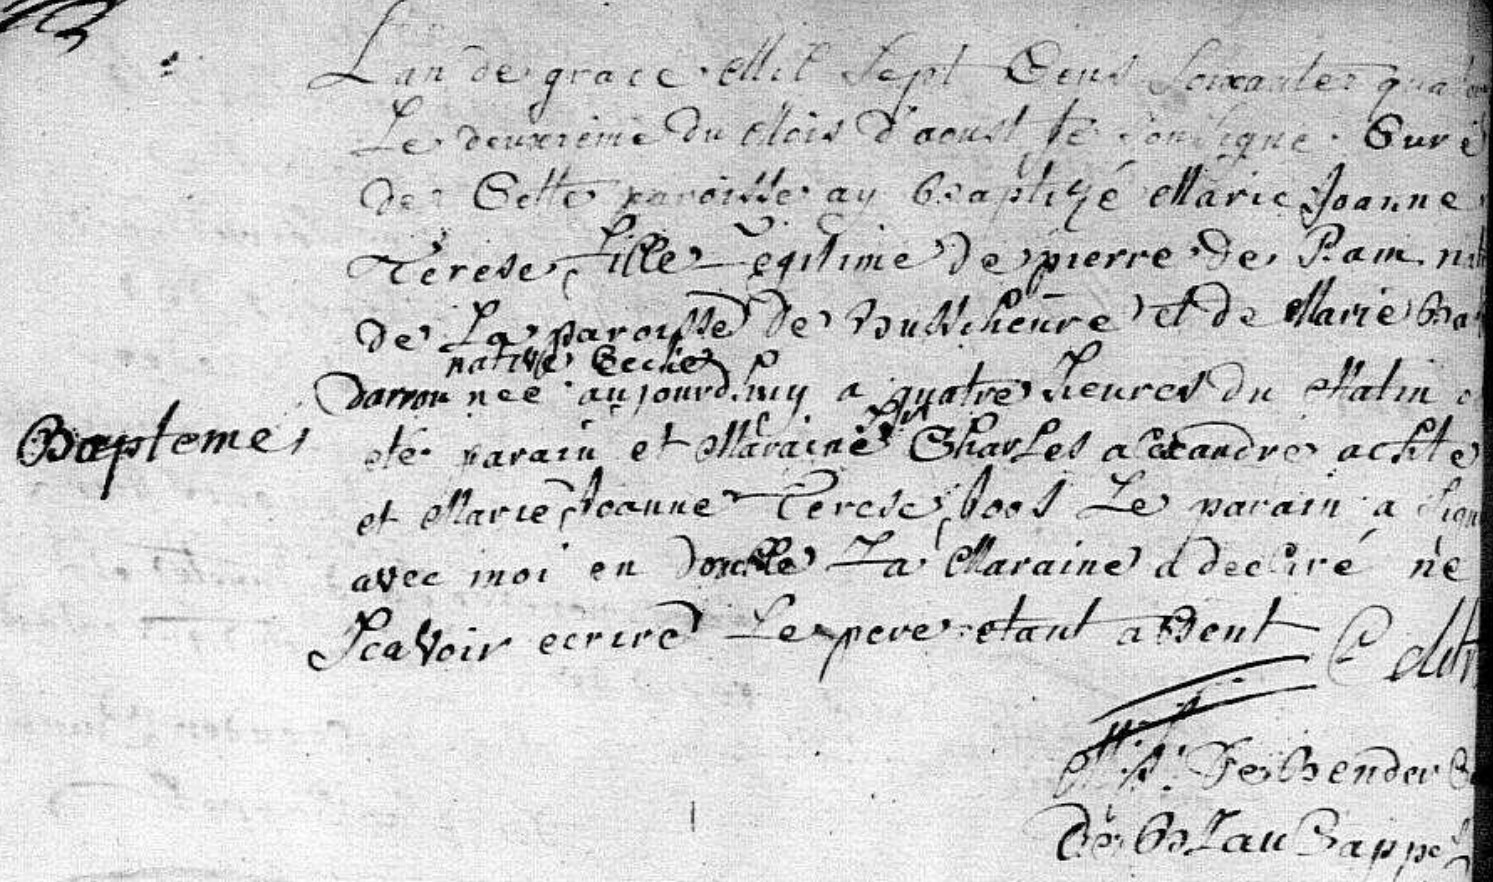 L'an de grace Mil Sept Cens Soixante quato
Le deuxieme du Mois d'aoust Je Soussigné Curé
de Cette paroisse ay Baptizé Marie Joanne
Terese Fille Legitime de pierre de Pam nat
de La paroisse de Busscheure et de Marie Ba
native
née aujourd'huy a quatre heures du Matin o
Bapteme
eté parain et Maraine Charles alexandre
et Marie Joanne Terese Joos Le parain a Sign
avec moi en Double La Maraine a declaré ne
Scavoir ecrire Le pere etant absent C
De Bender
de Blau Cappel